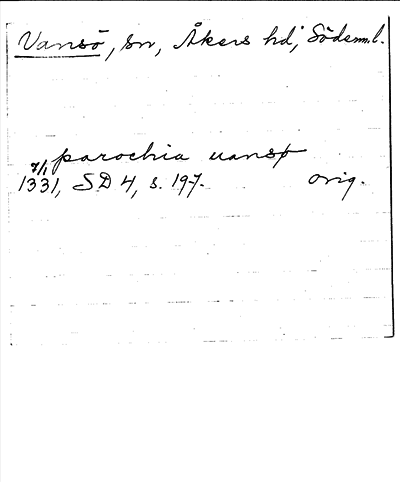 Vansö, sn, Åkers hd, Söderml.
parochia uansø
7/1
1331, SD 4, s. 197. orig.